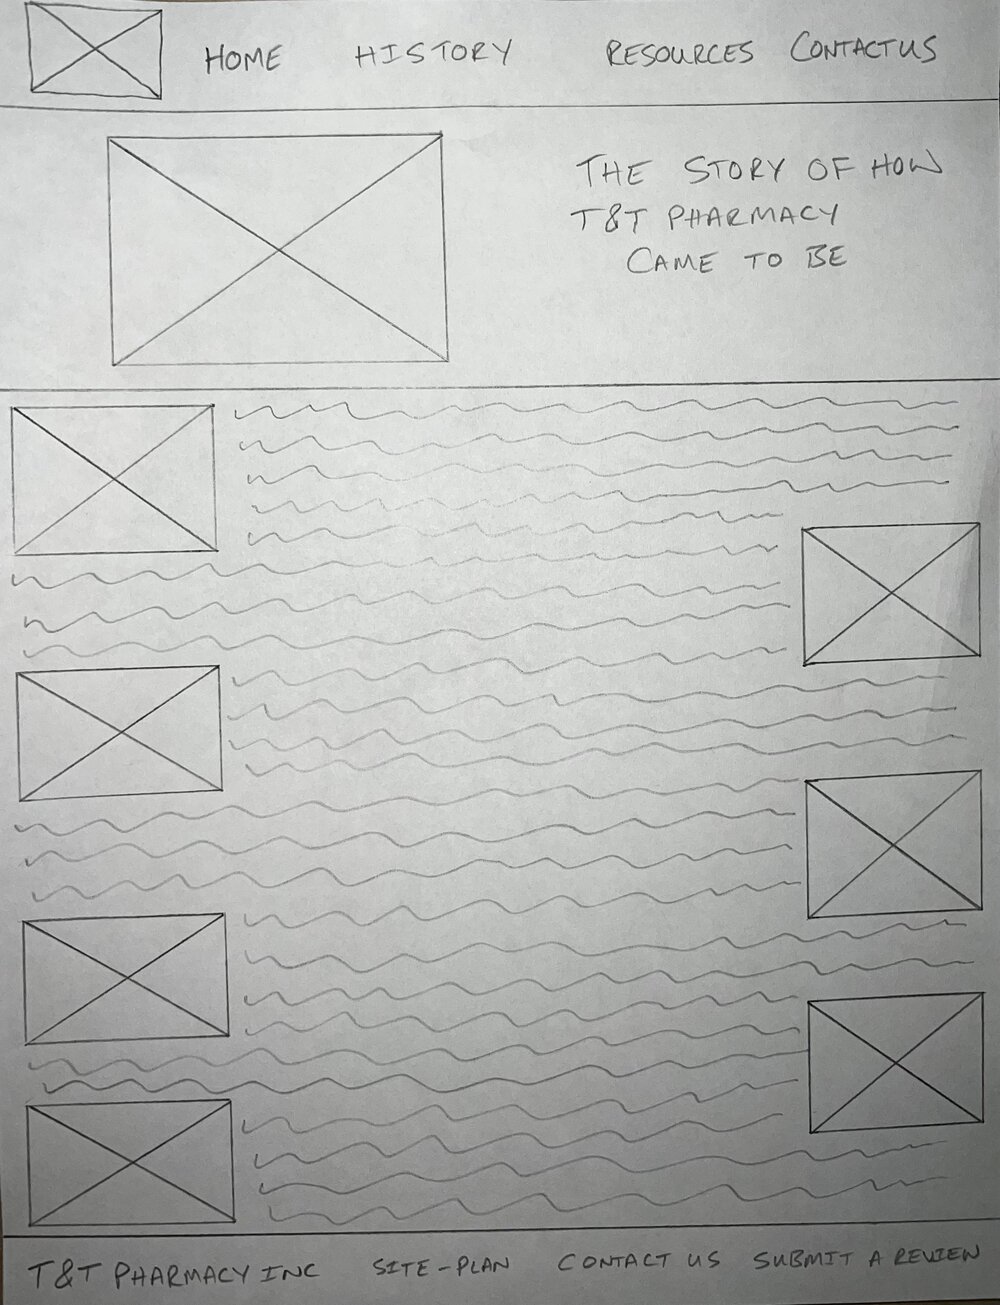 HOME HISTORY RESOURCES CONTACT US
THE STORY OF HOW
T&T PHARMACY
CAME TO BE
T&T PHARMACY INC SITE-PLAN CONTACT US SUBMIT A REVIEW